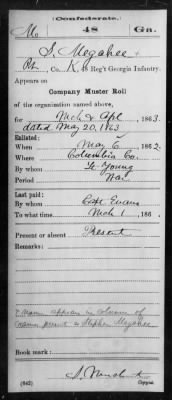 (Confederate.)
Mc 48 Ga.
S. Megahee
Pvt, Co. K, 48 Reg't Georgia Infantry.
Appears on
Company Muster Roll
of the organization named above,
for Mch & Apl, 1863.
dated May 20, 1863
Enlisted:
When May 6, 1862.
Where Columbia Co.
By whom Lt Young
Period War
Last paid:
By whom Capt Evans
To what time Mch 1, 186
Present or absent Present
Remarks:
Name appears in column of
names present as Stephen Megahee
Book mark:
(642) Copyist.